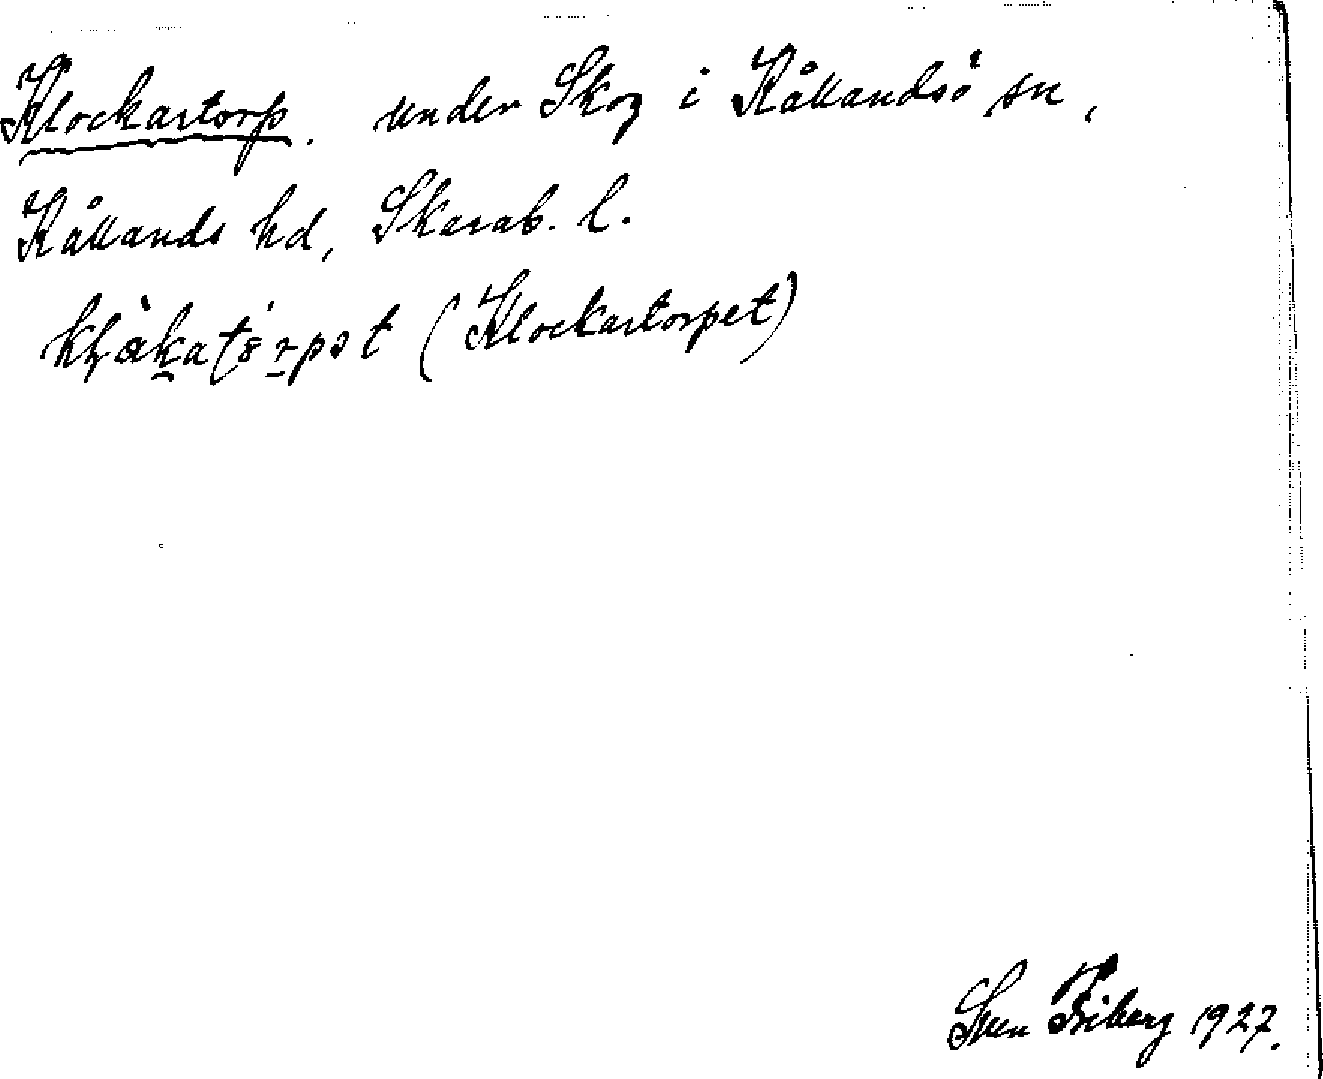 Klockartorp. under Skog i Kållandsö sn,
Kållands hd, Skarab. l.
(Klockartorpet)
Sven Friberg 1927.